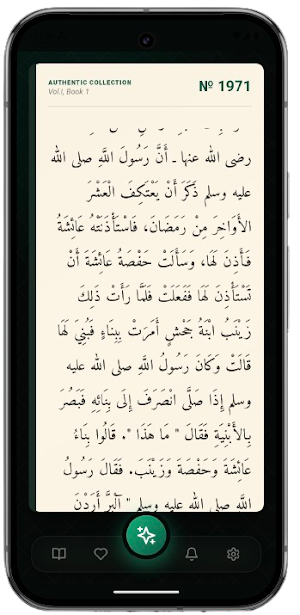 AUTHENTIC COLLECTION
Vol.I, Book 1
№ 1971
رضى الله عنها ـ أَنَّ رَسُولَ اللَّهِ صلى الله
عليه وسلم ذَكَرَ أَنْ يَعْتَكِفَ الْعَشْرَ
الأَوَاخِرَ مِنْ رَمَضَانَ، فَاسْتَأْذَنَتْهُ عَائِشَةُ
فَأَذِنَ لَهَا، وَسَأَلَتْ حَفْصَةُ عَائِشَةَ أَنْ
تَسْتَأْذِنَ لَهَا فَفَعَلَتْ فَلَمَّا رَأَتْ ذَلِكَ
زَيْنَبُ ابْنَةُ جَحْشٍ أَمَرَتْ بِبِنَاءٍ فَبُنِيَ لَهَا
قَالَتْ وَكَانَ رَسُولُ اللَّهِ صلى الله عليه
وسلم إِذَا صَلَّى انْصَرَفَ إِلَى بِنَائِهِ فَبَصُرَ
بِالأَبْنِيَةِ فَقَالَ " مَا هَذَا ‏"‏‏.‏ قَالُوا بِنَاءُ
عَائِشَةَ وَحَفْصَةَ وَزَيْنَبَ‏.‏ فَقَالَ رَسُولُ
اللَّهِ صلى الله عليه وسلم ‏"‏ آلْبِرَّ أَرَدْنَ